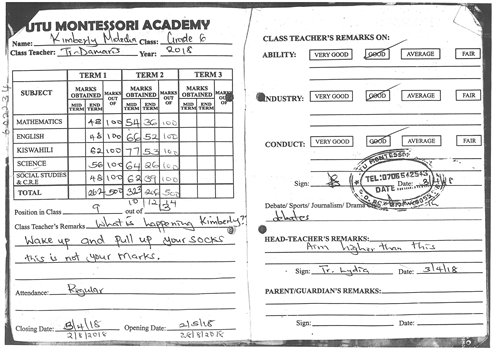 UTU MONTESSORI ACADEMY
Name: Kimberly Class: Grade 6
Class Teacher: Tr. Damaris Year: 2018
TERM 1 TERM 2 TERM 3
SUBJECT MARKS OBTAINED MARKS OUT OF MARKS OBTAINED MARKS OUT OF MARKS OBTAINED MARKS OUT OF
MID TERM END TERM MID TERM END TERM MID TERM END TERM
MATHEMATICS 48 100 54 36 100
ENGLISH 48 100 66 52 100
KISWAHILI 62 100 77 53 100
SCIENCE 56 100 64 26 100
SOCIAL STUDIES & C.R.E 48 100 62 39 100
TOTAL 262 500 323 206 500
Position in Class 9 out of
Class Teacher's Remarks What is happening Kimberly?
Wake up and pull up your socks
this is not your marks.
Attendance: Regular
Closing Date: 5/4/18 Opening Date: 2/5/18
2/8/2018 28/8/2018
CLASS TEACHER'S REMARKS ON:
ABILITY: VERY GOOD GOOD AVERAGE FAIR
INDUSTRY: VERY GOOD GOOD AVERAGE FAIR
CONDUCT: VERY GOOD GOOD AVERAGE FAIR
UTU MONTESSORI
TEL:0706542543
DATE
Sign: Date:
Debate/ Sports/ Journalism/ Drama
debates
HEAD-TEACHER'S REMARKS:
Aim higher than this
Sign: Tr. Lydia Date: 3/4/18
PARENT/GUARDIAN'S REMARKS:
Sign: Date: